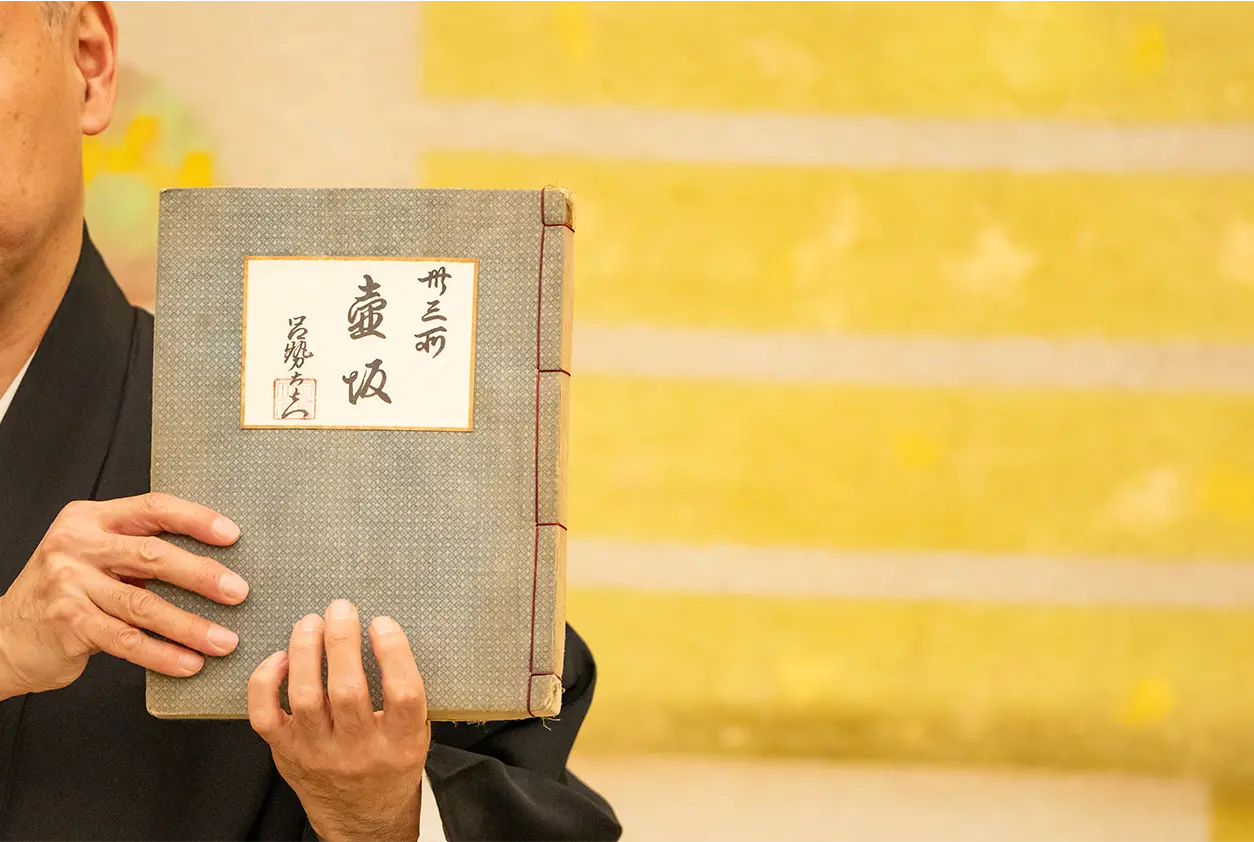 卅三所
壺坂
呂勢太夫